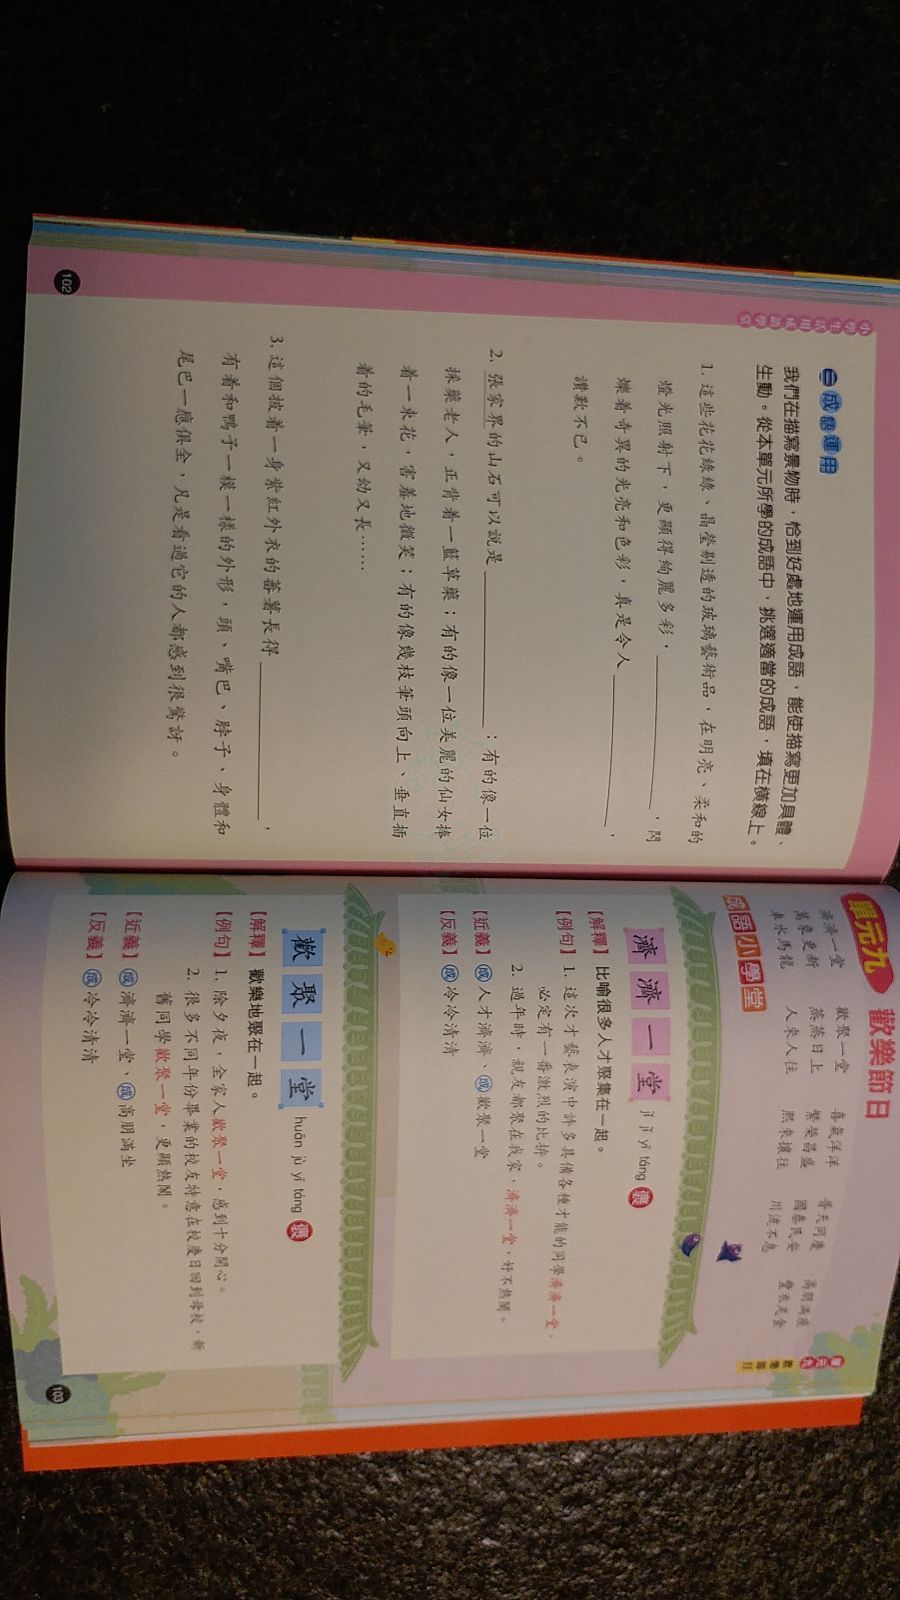 小學生活用成語學堂
三 成語運用
我們在描寫景物時，恰到好處地運用成語，能使描寫更加具體、
生動。從本單元所學的成語中，挑選適當的成語，填在橫線上。
1. 這些花花綠綠、晶瑩剔透的玻璃藝術品，在明亮、柔和的
燈光照射下，更顯得絢麗多彩，____________，閃
爍着奇異的光亮和色彩，真是令人____________，
讚歎不已。
2. 張家界的山石可以說是____________：有的像一位
採藥老人，正背着一籃草藥；有的像一位美麗的仙女捧
着一束花，害羞地微笑；有的像幾枝筆頭向上、垂直插
着的毛筆，又幼又長……
3. 這個披着一身紫紅外衣的蕃薯長得____________，
有着和鴨子一模一樣的外形，頭、嘴巴、脖子、身體和
尾巴一應俱全，凡是看過它的人都感到很驚訝。
102
單元九 歡樂節日
濟濟一堂 歡聚一堂 喜氣洋洋 普天同慶 高朋滿座
萬象更新 蒸蒸日上 繁榮昌盛 國泰民安 豐衣足食
車水馬龍 人來人往 熙來攘往 川流不息
成語小學堂
濟濟一堂 jǐ jǐ yì táng 褒
【解釋】比喻很多人才聚集在一起。
【例句】1. 這次才藝表演中許多具備各種才能的同學濟濟一堂，
必定有一番激烈的比拚。
2. 過年時，親友都聚在我家，濟濟一堂，好不熱鬧。
【近義】成 人才濟濟、成 歡聚一堂
【反義】成 冷冷清清
歡聚一堂 huān jù yì táng
【解釋】歡樂地聚在一起。
【例句】1. 除夕夜，全家人歡聚一堂，感到十分開心。
2. 很多不同年份畢業的校友特意在校慶日回到母校，新
舊同學歡聚一堂，更顯熱鬧。
【近義】成 濟濟一堂、成 高朋滿坐
【反義】成 冷冷清清
單元九
歡樂節日
103